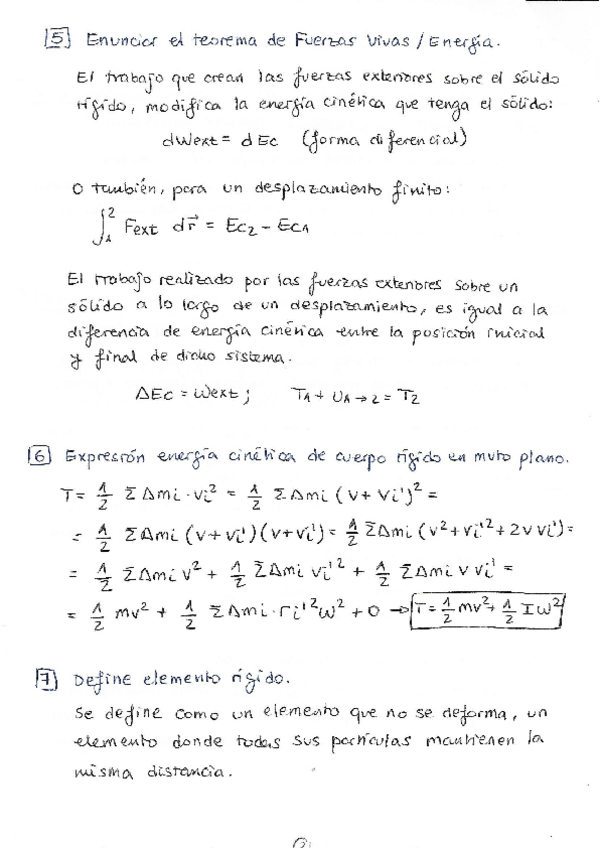 5 Enunciar el teorema de Fuerzas Vivas / Energía.
El trabajo que crean las fuerzas exteriores sobre el sólido
rígido, modifica la energía cinética que tenga el sólido:
dWext = dEc (forma diferencial)
O también, para un desplazamiento finito:
∫₁² Fext dr⃗ = Ec₂ - Ec₁
El trabajo realizado por las fuerzas exteriores sobre un
sólido a lo largo de un desplazamiento, es igual a la
diferencia de energía cinética entre la posición inicial
y final de dicho sistema.
ΔEc = Wext; T₁ + U₁→₂ = T₂
6 Expresión energía cinética de cuerpo rígido en mvto plano.
T = 1/2 ΣΔmi · vi² = 1/2 ΣΔmi (v + vi')² =
= 1/2 ΣΔmi (v + vi')(v + vi') = 1/2 ΣΔmi (v² + vi'² + 2v vi') =
= 1/2 ΣΔmi v² + 1/2 ΣΔmi vi'² + 1/2 ΣΔmi v vi' =
= 1/2 mv² + 1/2 ΣΔmi · ri'² ω² + 0 → T = 1/2 mv² + 1/2 I ω²
7 Define elemento rígido.
Se define como un elemento que no se deforma, un
elemento donde todas sus partículas mantienen la
misma distancia.